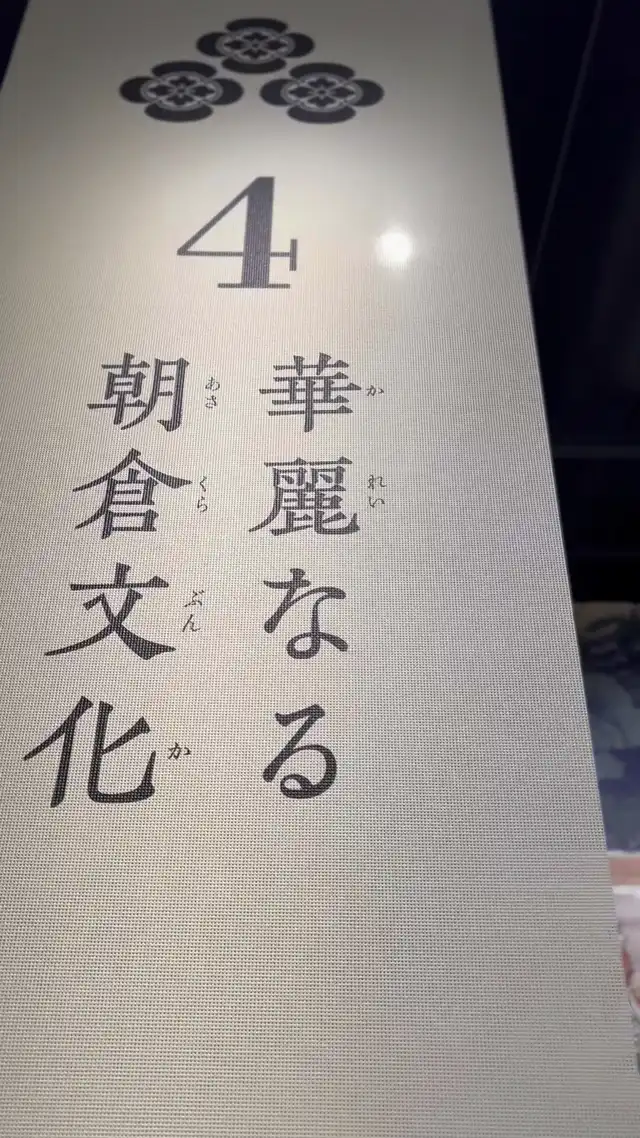 4
華麗なる
かれい
朝倉文化
あさくらぶんか